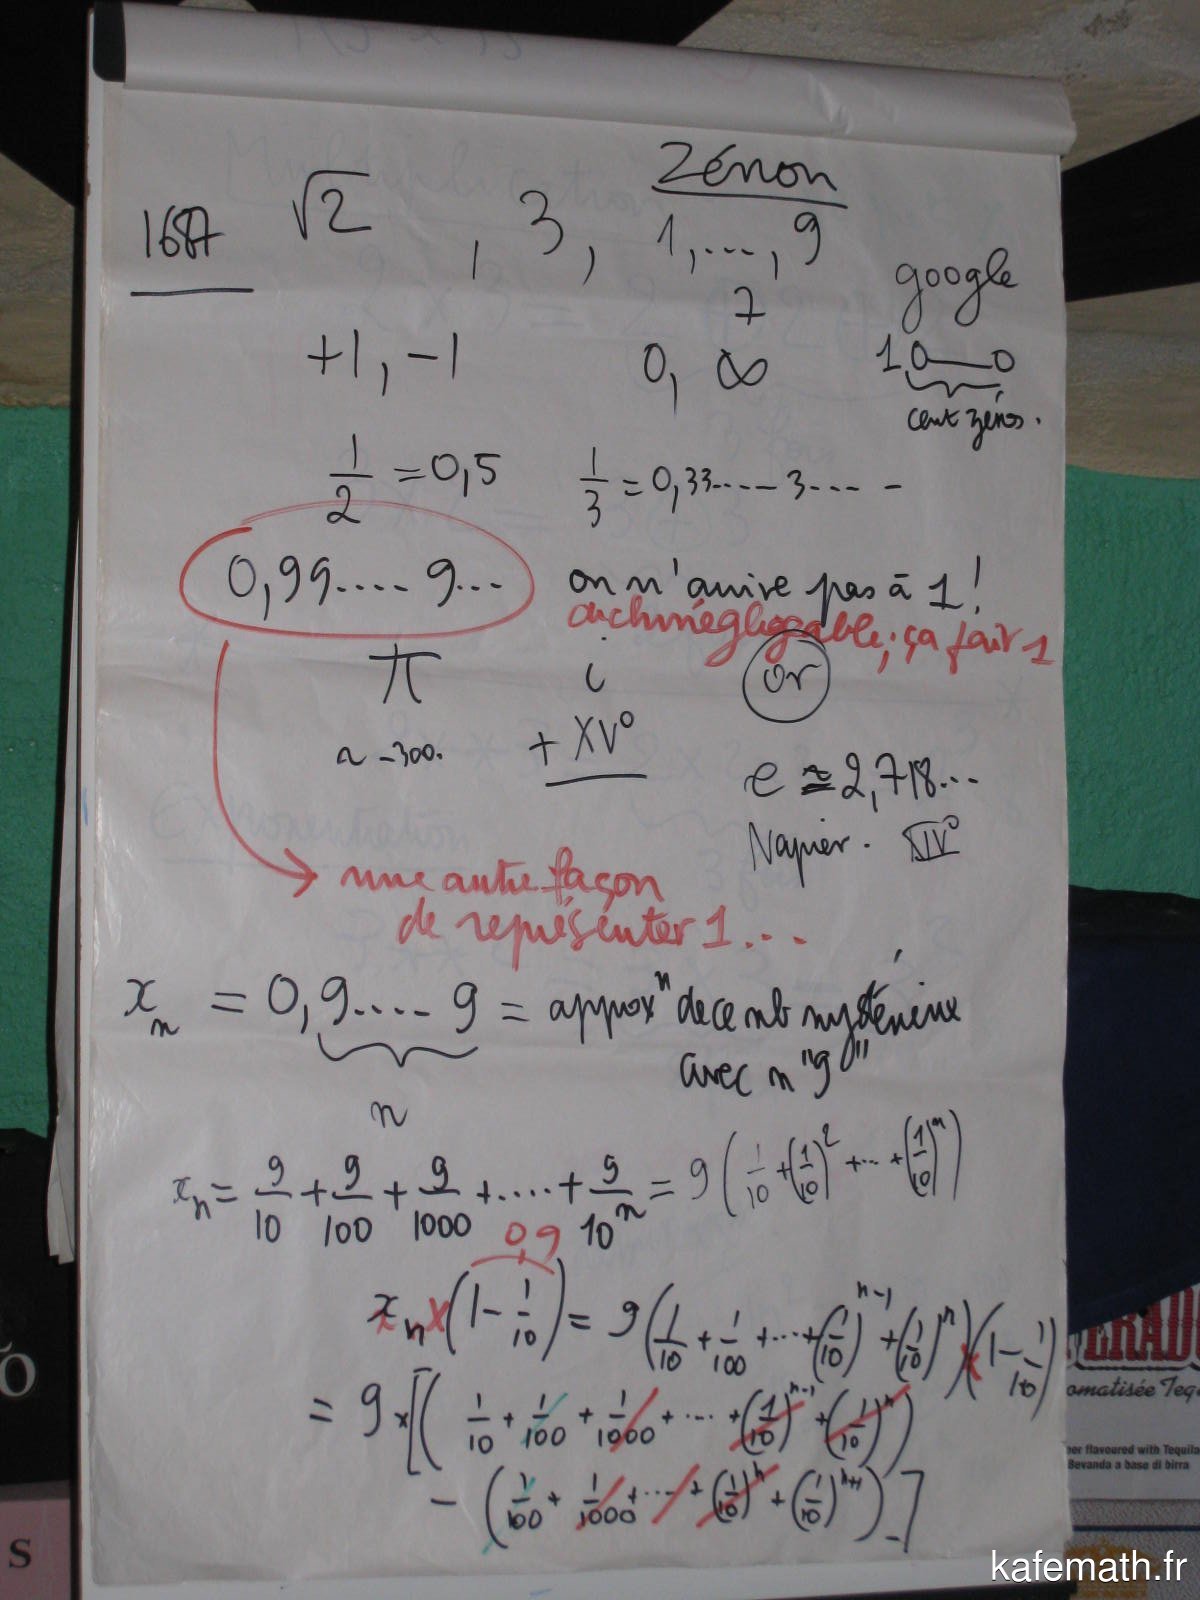 Zénon
1687 √2 , 3 , 1,...,9
7
google
+1, -1 0, ∞ 10—0
cent zéros.
1/2 = 0,5 1/3 = 0,33.....3.... -
0,99.... 9... on n'arrive pas à 1!
archinégligeable; ça fait 1
π i or
~ -300. + XV°
e ≈ 2,718...
Napier. XIV°
une autre façon
de représenter 1...
x_n = 0,9....9 = approxⁿ de ce nb mystérieux
avec n "9"
n
x_n = 9/10 + 9/100 + 9/1000 + ..... + 9/10^n = 9 (1/10 + (1/10)^2 + ... + (1/10)^n)
0,9
x_n × (1 - 1/10) = 9 (1/10 + 1/100 + ... + (1/10)^(n-1) + (1/10)^n) × (1 - 1/10)
= 9 × [(1/10 + 1/100 + 1/1000 + .... + (1/10)^(n-1) + (1/10)^n)
- (1/100 + 1/1000 + ... + (1/10)^n + (1/10)^(n+1))]
ERADO
omatisée Teq
her flavoured with Tequila
Bevanda a base di birra
O
S
kafemath.fr